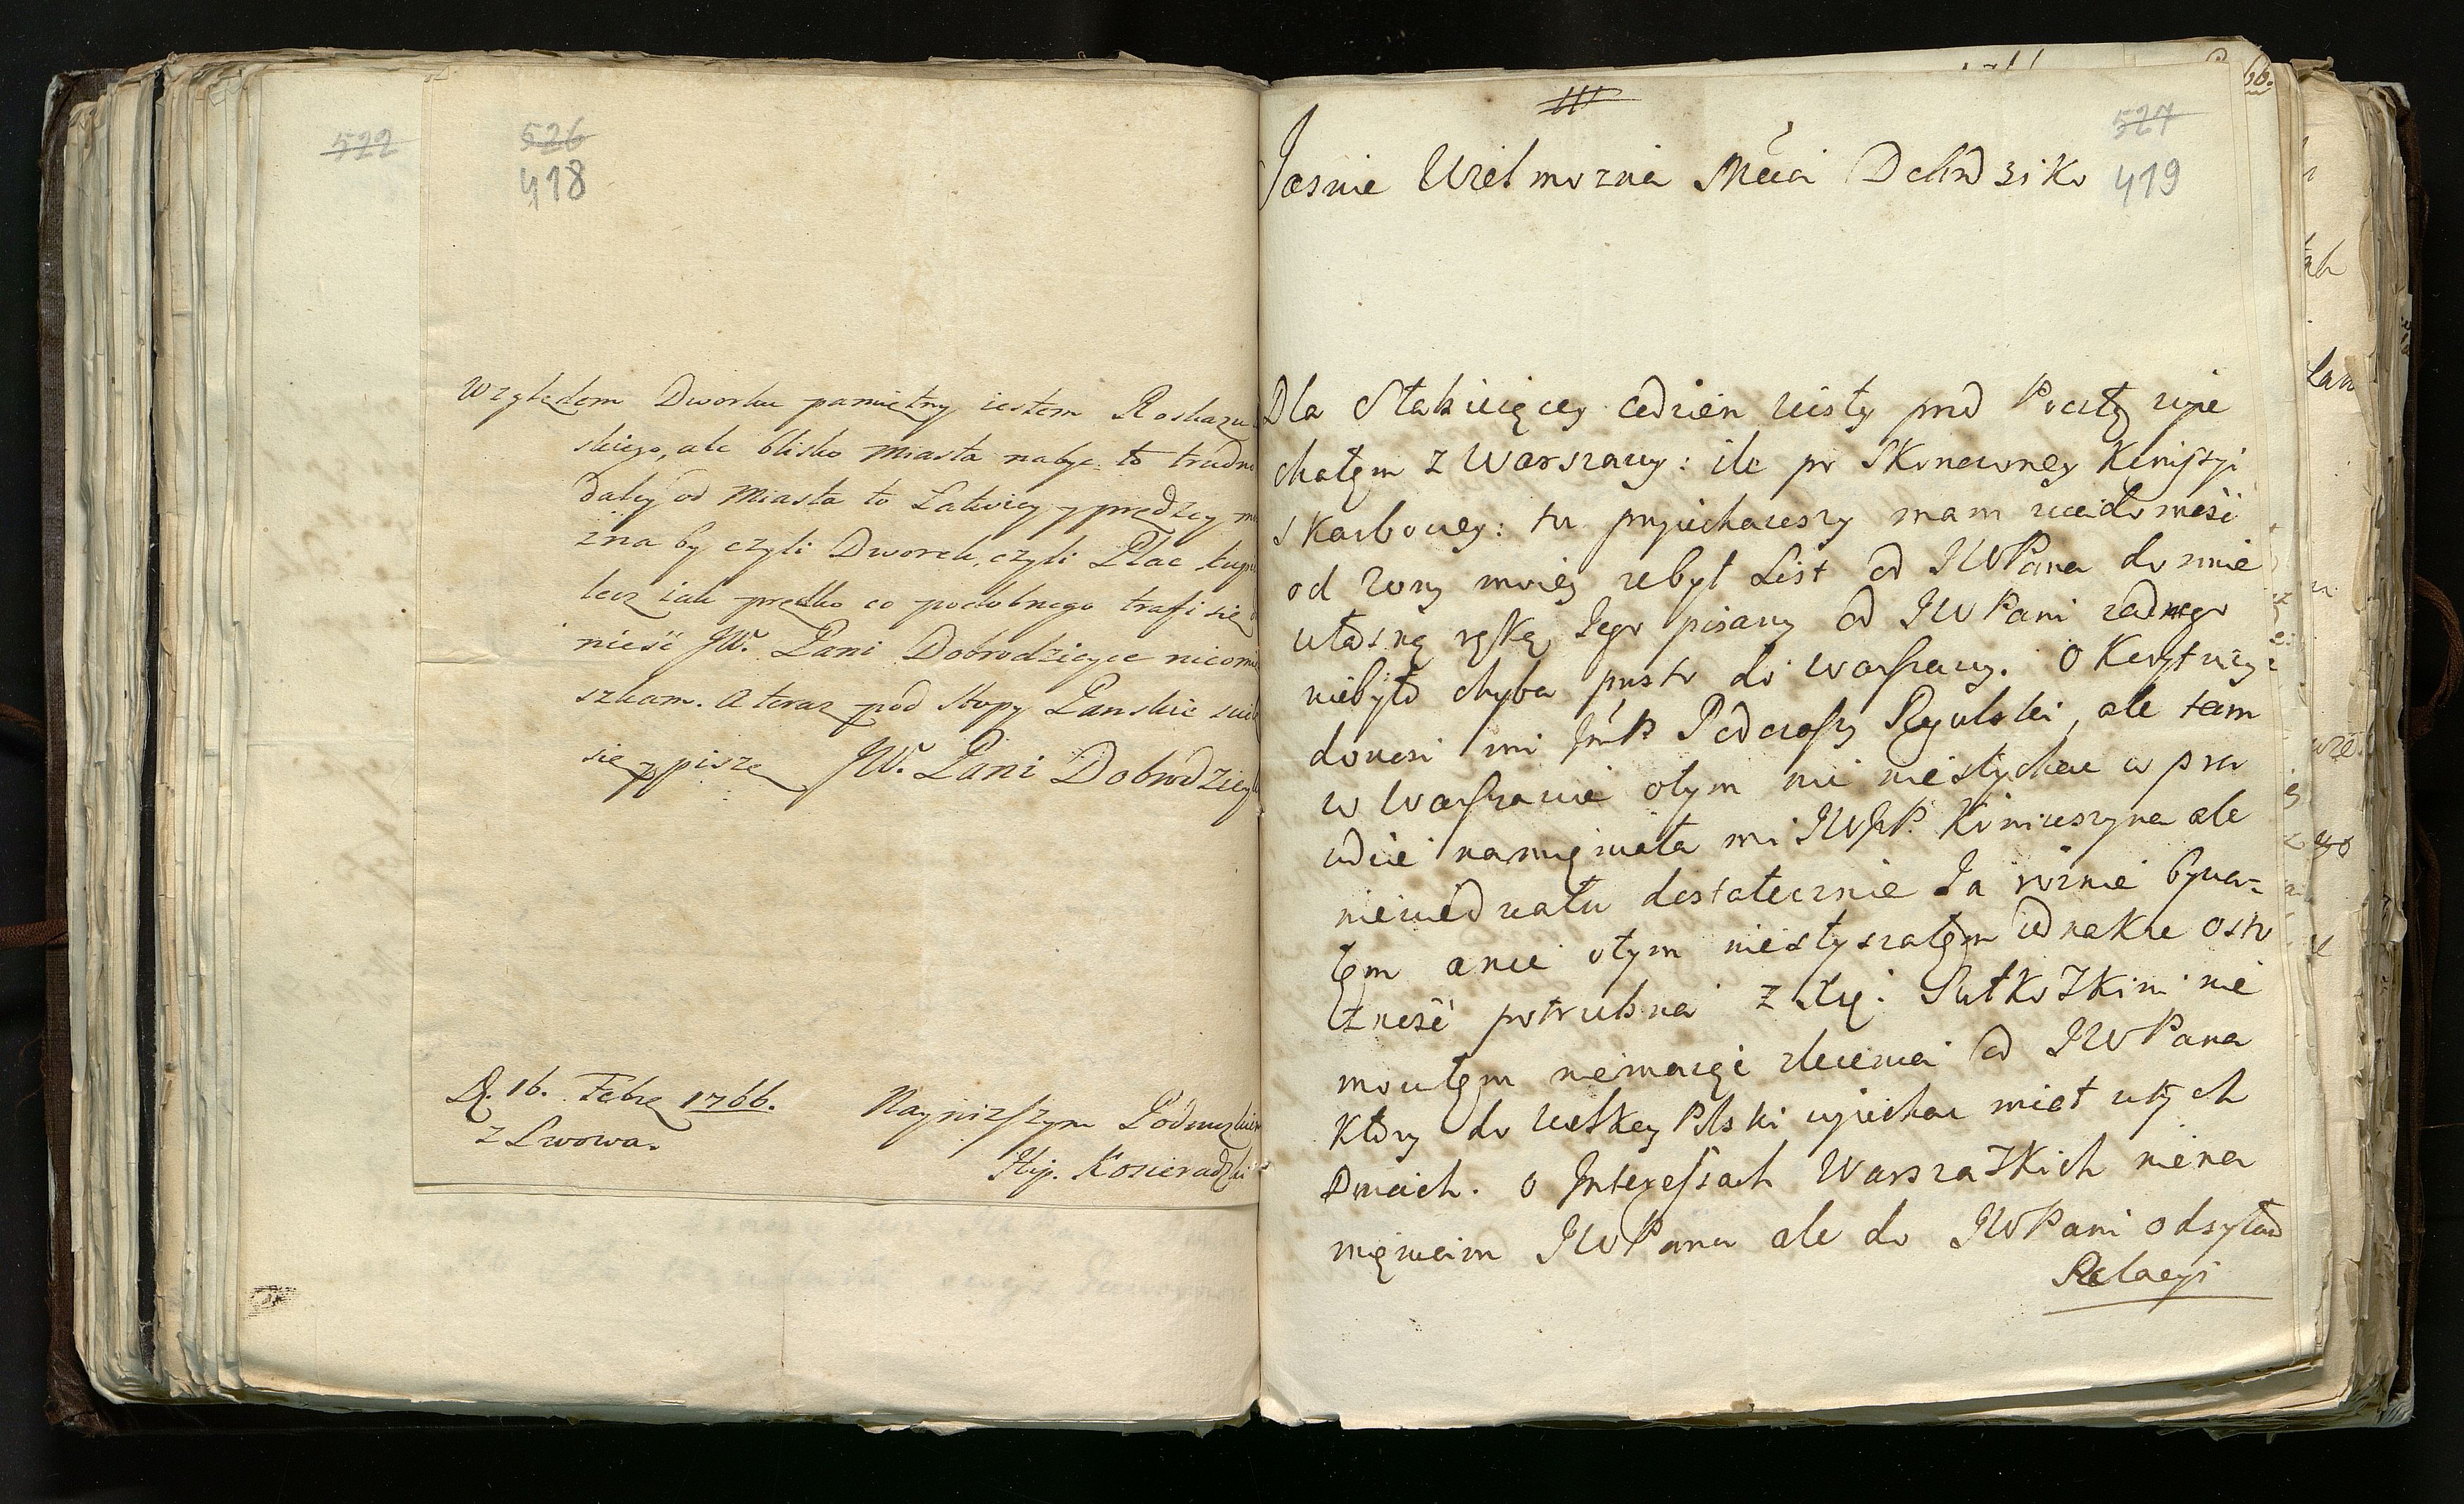 522
526
418
Względem Dworku pamiętny iestem Roskazu
skiego, ale blisko Miasta nabyc to trudno
daley od Miasta to Łatwiey y prędzey mo
zna by czyli Dworek, czyli Plac kup
lecz iak prędko co podobnego trafi się
nieść JW. Pani Dobrodzieyce nieomi
szkam. A teraz pod Stopy Panskie
się y pisze JW. Pani Dobrodziey
D. 16. Febr 1766.
z Lwowa.
Nayniższym Podnuzkiem
Hip. Kosieradzki
527
419
Jasnie Wielmozna Mcia Dobrdziko
Dla Stakuiącey odzień
chałem z Warszawy: ile po Skonczoney Kommissyi
Skarbowey: tu przyiechawszy mam wiadomość
od Zony moiey zebył List od JWPana do mnie
własną ręką Jego pisany od JWPani zadnego
niebyło chyba prosto do Warszawy. O
donosi mi JmP Podczaszy Rygulski, ale tam
w Warszawie otym nic niesłychac w pra
wdzie namięniała mi JWJP. Koniuszyna ale
niewiedziała dostatecznie Ja roznie bywa=
łęm anic otym niesłyszałęm iednakze ostro
znosć potrzebna z Xię. Sułkoskim nie
mowiłęm niemaiąc zlecenia od JWPana
ktory do Wielkey Polski wyiechac miał w tych
Dniach. o Interessach Warszaskich niena
mięniam JWPana ale do JWPani odsyłam
Relacyi